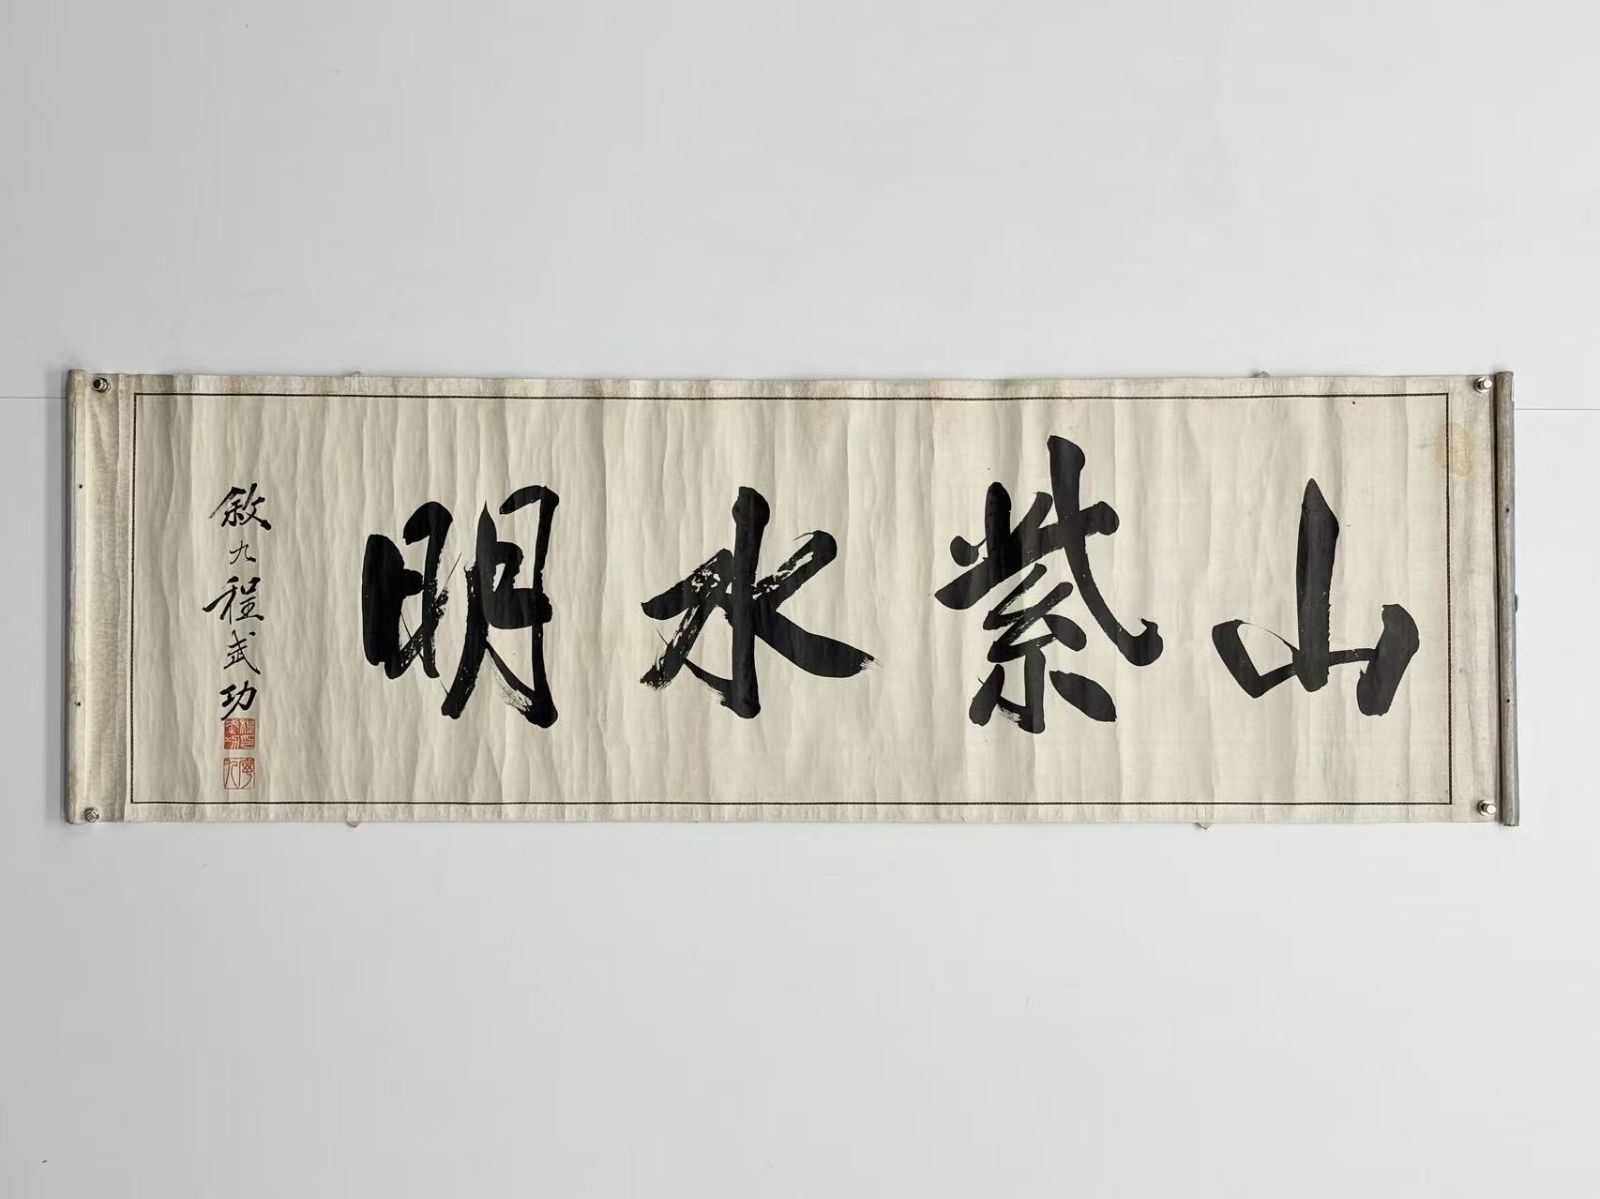 山紫水明
敘九程武功